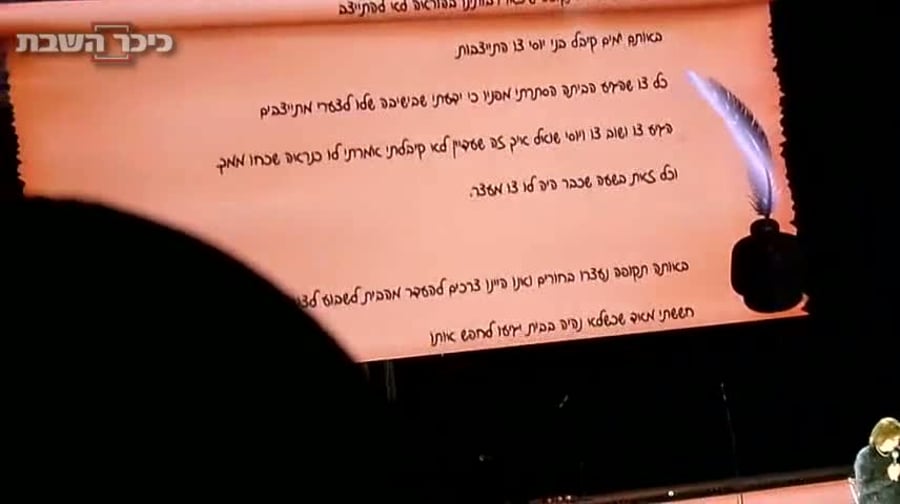 כיכר השבת
רבותינו בהוראה לא להתייצב
באותם ימים קיבל בני יוסי צו התייצבות.
כל צו שהגיע הביתה הסתרתי מפניו כי ידעתי שבישיבה שלו לצערי מתייצבים
הגיע צו ושוב צו ויוסי שואל איך זה שעדיין לא קיבלתי אמרתי לו כנראה שכחו ממך.
וכל זאת בשעה שכבר היה לו צו מעצר.
באותה תקופה נעצרו בחורים ואנו היינו צריכים להעדר מהבית לשבוע
חששתי מאוד שכשלא נהיה בבית יגיעו לחפש אותו